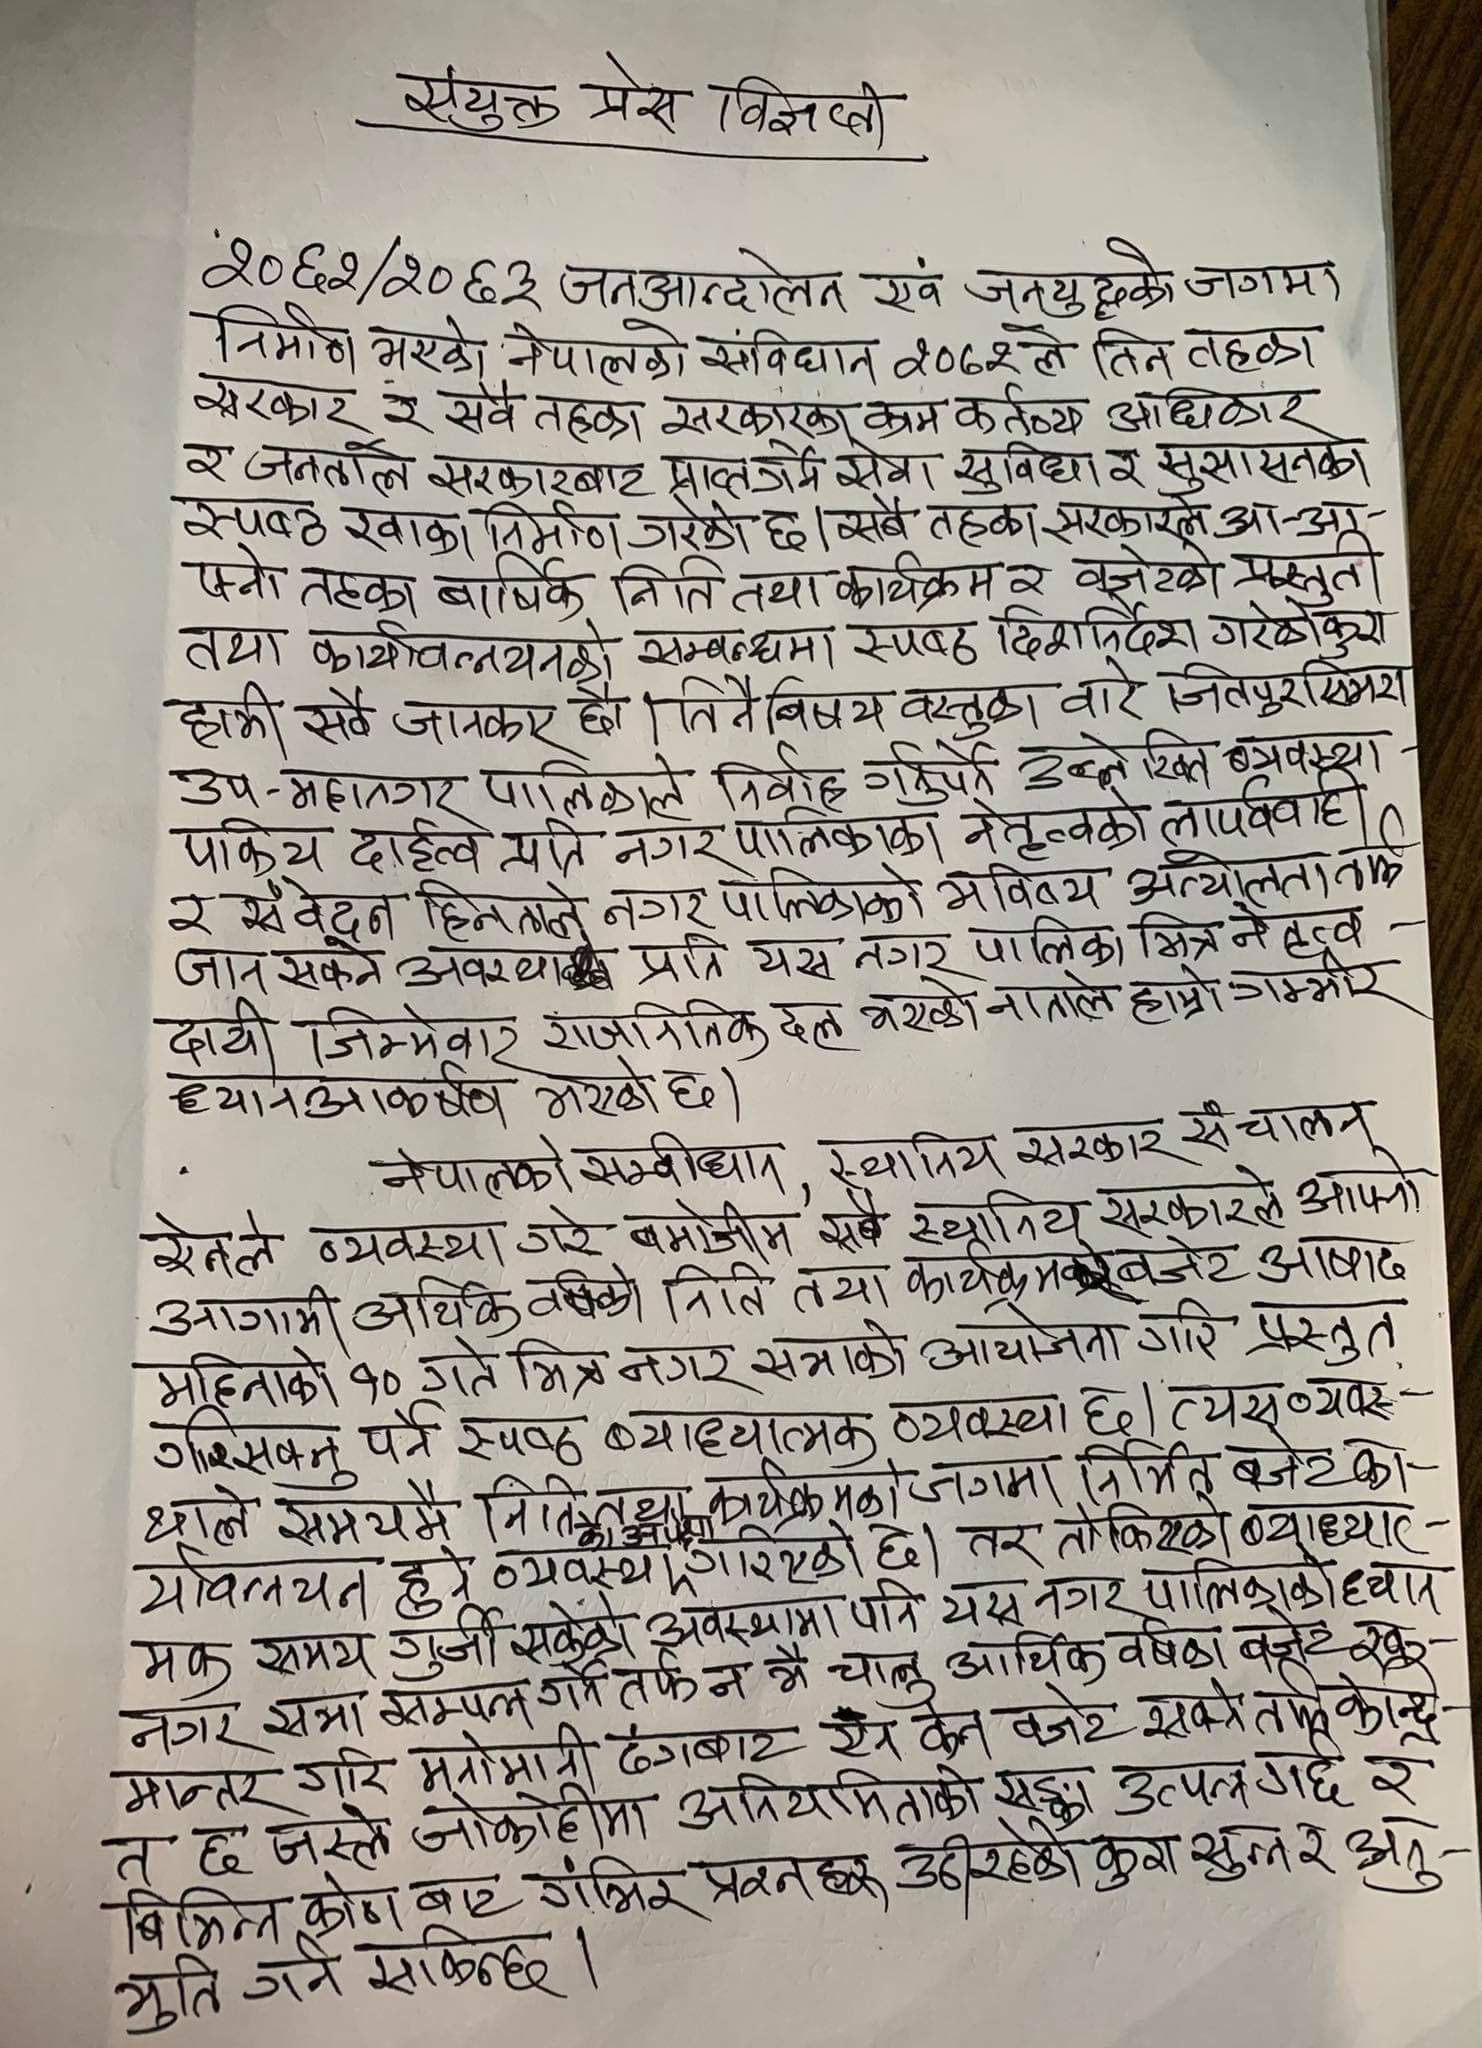 संयुक्त प्रेस विज्ञप्ती
२०६२/२०६३ जनआन्दोलन एवं जनयुद्धको जगमा
निर्माण भएको नेपालको संविधान २०७२ ले तिन तहका
सरकार र सवै तहका सरकारका काम कर्तव्य अधिकार
र जनताले सरकारबाट प्राप्तगर्ने सेवा सुविधा र सुसासनको
स्पष्ठ खाका निर्माण गरेको छ। सबै तहका सरकारले आ-आ-
फ्नो तहका बार्षिक निति तथा कार्यक्रम र वजेटको प्रस्तुती
तथा कार्यावन्नयनको सम्बन्धमा स्पष्ठ दिशानिर्देश गरेकोकुरा
हामी सवै जानकार छौ। तिनै बिषय वस्तुका वारे जितपुरसिमरा
उप-महानगर पालिकाले निर्वाह गर्नुपर्ने उल्लेखित ब्यवस्था-
पकिय दाईत्व प्रति नगर पालिकाका नेतृत्वको लापर्ववाही
र सँवेदन हिनताले नगर पालिकाको भविष्य अन्यौलता तर्फ
जान सक्ने अवस्था प्रति यस नगर पालिका भित्र नेतृत्व-
दायी जिम्मेवार राजनितिक दल भएको नाताले हाम्रो गम्भीर
ध्यानआकर्षण भएको छ।
नेपालको सम्वीधान, स्थानिय सरकार सँचालन
ऐनले व्यवस्था गरे बमोजीम सबै स्थानिय सरकारले आफ्नो
आगामी आर्थिक वर्षको निति तथा कार्यक्रम र बजेट आषाढ
महिनाको १० गते भित्र नगर सभाको आयोजना गरि प्रस्तुत
गरिसक्नु पर्ने स्पष्ठ ब्याध्यात्मक व्यवस्था छ। त्यस व्यवस्-
थाले समयमै निति तथा कार्यक्रमको जगमा निर्मित बजेट का-
र्यावन्नयन हुने व्यवस्था गरिएको छ। तर तोकिएको ब्याध्यात-
मक समय गुर्जी सकेको अवस्थामा पनि यस नगर पालिकाको ध्यान
नगर सभा सम्पन्न गर्ने तर्फ न भै चालु आर्थिक वर्षका बजेट रकु-
मान्तर गरि मनोमानी ढंगबाट एन केन वजेट सक्ने तर्फ केन्द्रि-
त छ जस्ले जोकोहीमा अनियमिताको सङ्का उत्पन्न गर्छ र
बिभिन्न कोण बाट गंभिर प्रश्नहरू उठीरहेको कुरा सुन्न र अनु-
भुति गर्न सकिन्छ।